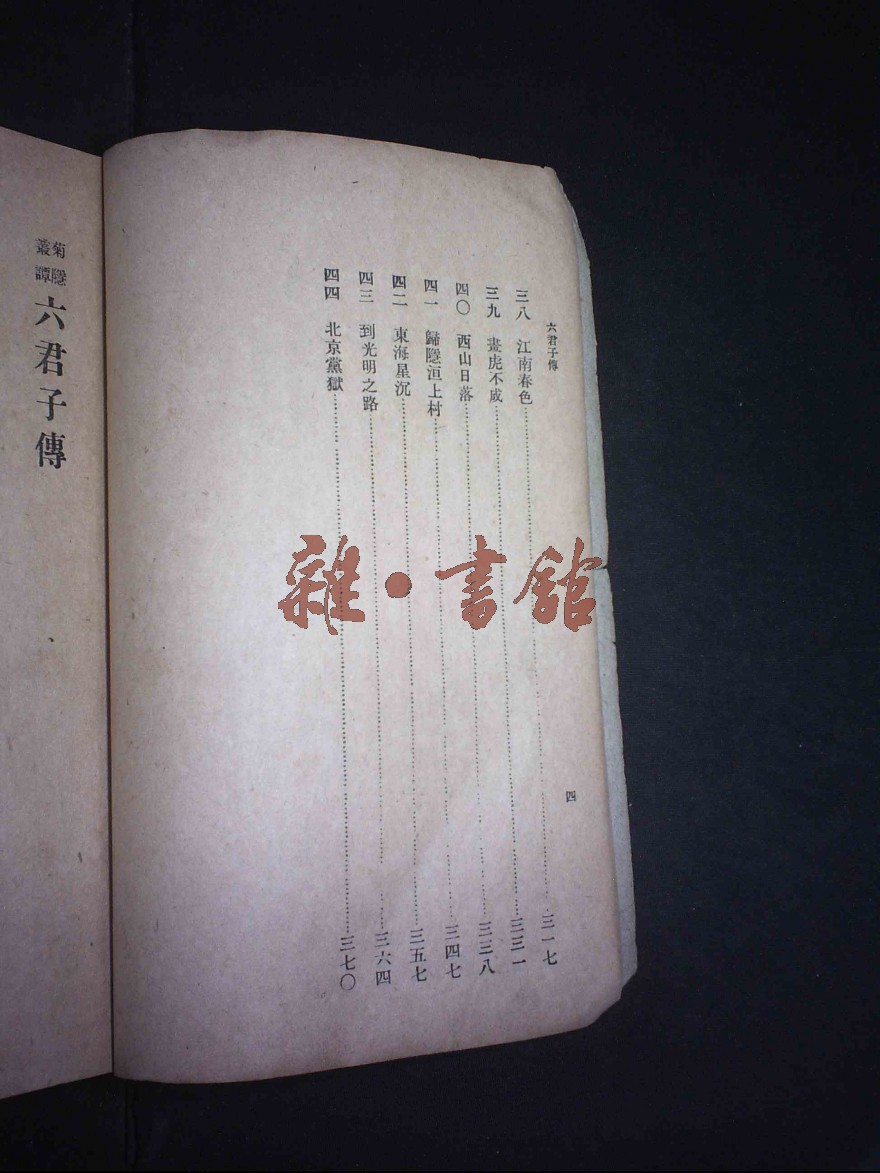 六君子傳
三八　江南春色……三一七
三九　畫虎不成……三三一
四〇　西山日落……三三八
四一　歸隱洹上村……三四七
四二　東海星沉……三五七
四三　到光明之路……三六四
四四　北京黨獄……三七〇
四
菊隱叢譚
六君子傳
雜·書館